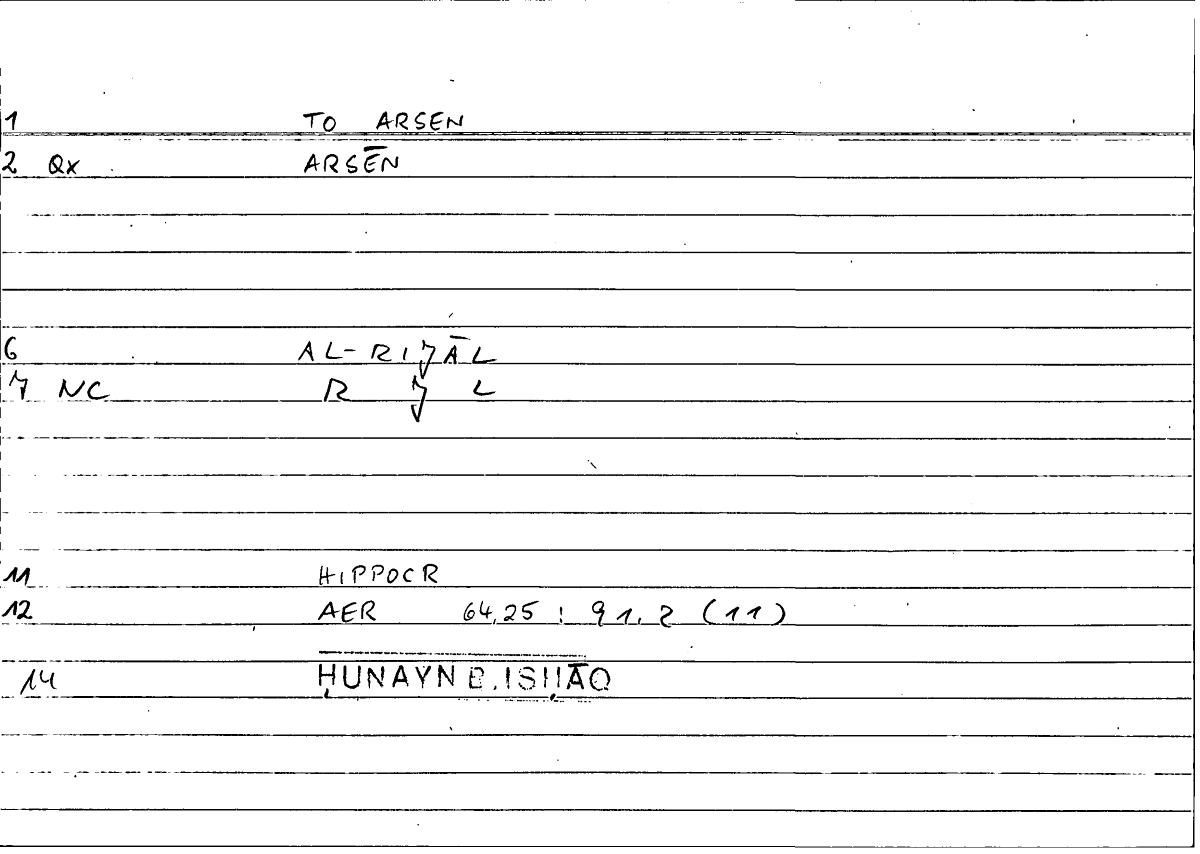 1 TO ARSEN
2 Qx ARSĒN
6 AL-RIJĀL
7 NC R J L
11 HIPPOCR
12 AER 64,25 : 91,2 (11)
14 ḤUNAYN B. ISḤĀQ